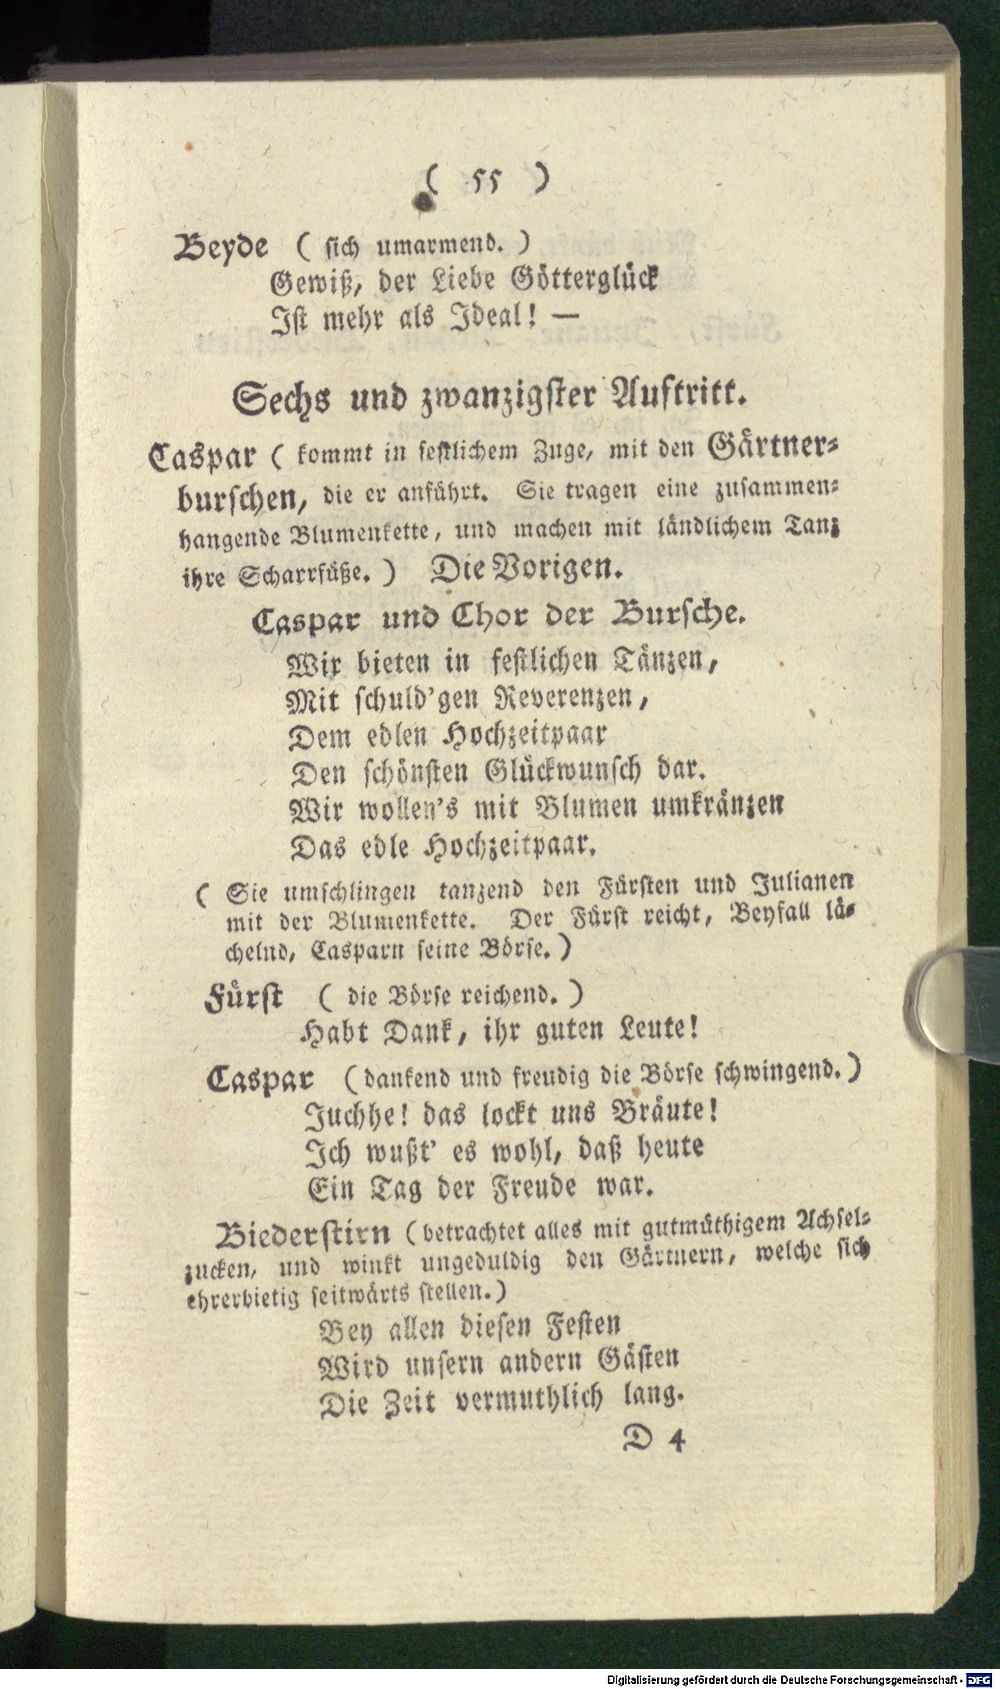 ( 55 )
Beyde ( sich umarmend. )
Gewiß, der Liebe Götterglück
Ist mehr als Ideal! —
Sechs und zwanzigster Auftritt.
Caspar ( kommt in festlichem Zuge, mit den Gärtner-
burschen, die er anführt. Sie tragen eine zusammen-
hangende Blumenkette, und machen mit ländlichem Tanz
ihre Scharrfüße. ) Die Vorigen.
Caspar und Chor der Bursche.
Wir bieten in festlichen Tänzen,
Mit schuld'gen Reverenzen,
Dem edlen Hochzeitpaar
Den schönsten Glückwunsch dar.
Wir wollen's mit Blumen umkränzen
Das edle Hochzeitpaar.
( Sie umschlingen tanzend den Fürsten und Julianen
mit der Blumenkette. Der Fürst reicht, Beyfall lä-
chelnd, Casparn seine Börse. )
Fürst ( die Börse reichend. )
Habt Dank, ihr guten Leute!
Caspar ( dankend und freudig die Börse schwingend. )
Juchhe! das lockt uns Bräute!
Ich wußt' es wohl, daß heute
Ein Tag der Freude war.
Biederstirn ( betrachtet alles mit gutmüthigem Achsel-
zucken, und winkt ungeduldig den Gärtnern, welche sich
ehrerbietig seitwärts stellen. )
Bey allen diesen Festen
Wird unsern andern Gästen
Die Zeit vermuthlich lang.
D 4
Digitalisierung gefördert durch die Deutsche Forschungsgemeinschaft - DFG